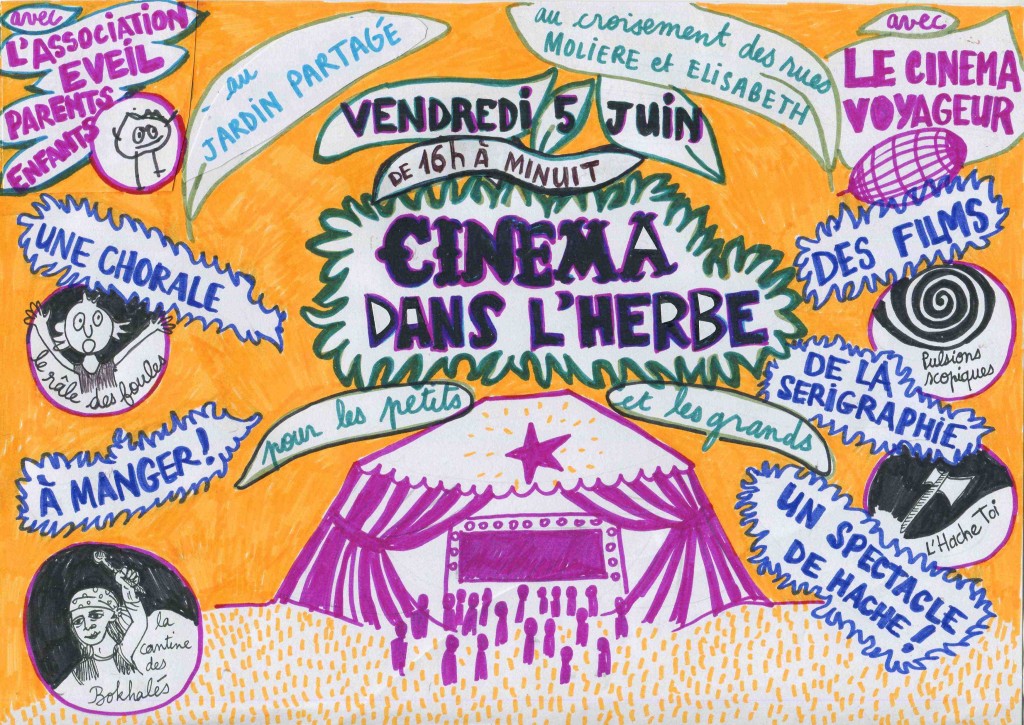 avec
L'ASSOCIATION
EVEIL
PARENTS
ENFANTS
au
JARDIN PARTAGÉ
au croisement des rues
MOLIERE et ELISABETH
avec
LE CINEMA
VOYAGEUR
VENDREDI 5 JUIN
DE 16h À MINUIT
CINEMA
DANS L'HERBE
pour les petits
et les grands
UNE CHORALE
le râle des foules
À MANGER!
la
cantine
des
Bokhalés
DES FILMS
Pulsions
scopiques
DE LA
SERIGRAPHIE
L'Hache Toi
UN SPECTACLE
DE HACHE!